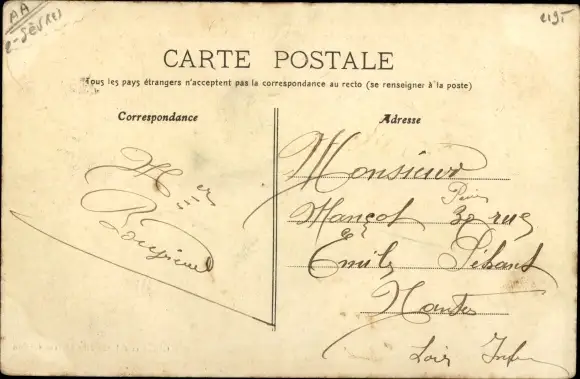 AA
2-Sèvres
CARTE POSTALE
Tous les pays étrangers n'acceptent pas la correspondance au recto (se renseigner à la poste)
Correspondance
Adresse
Monsieur
Mançot 32 rue
Emile Péhant
Nantes
Loire Infre